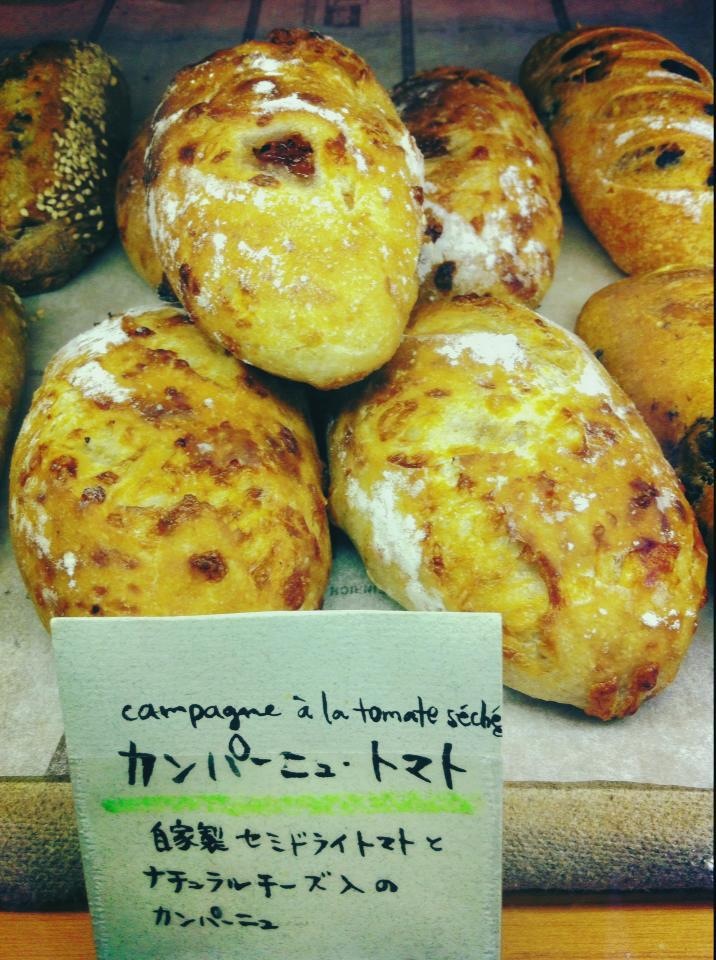 campagne à la tomate séché
カンパーニュ・トマト
自家製セミドライトマトと
ナチュラルチーズ入の
カンパーニュ